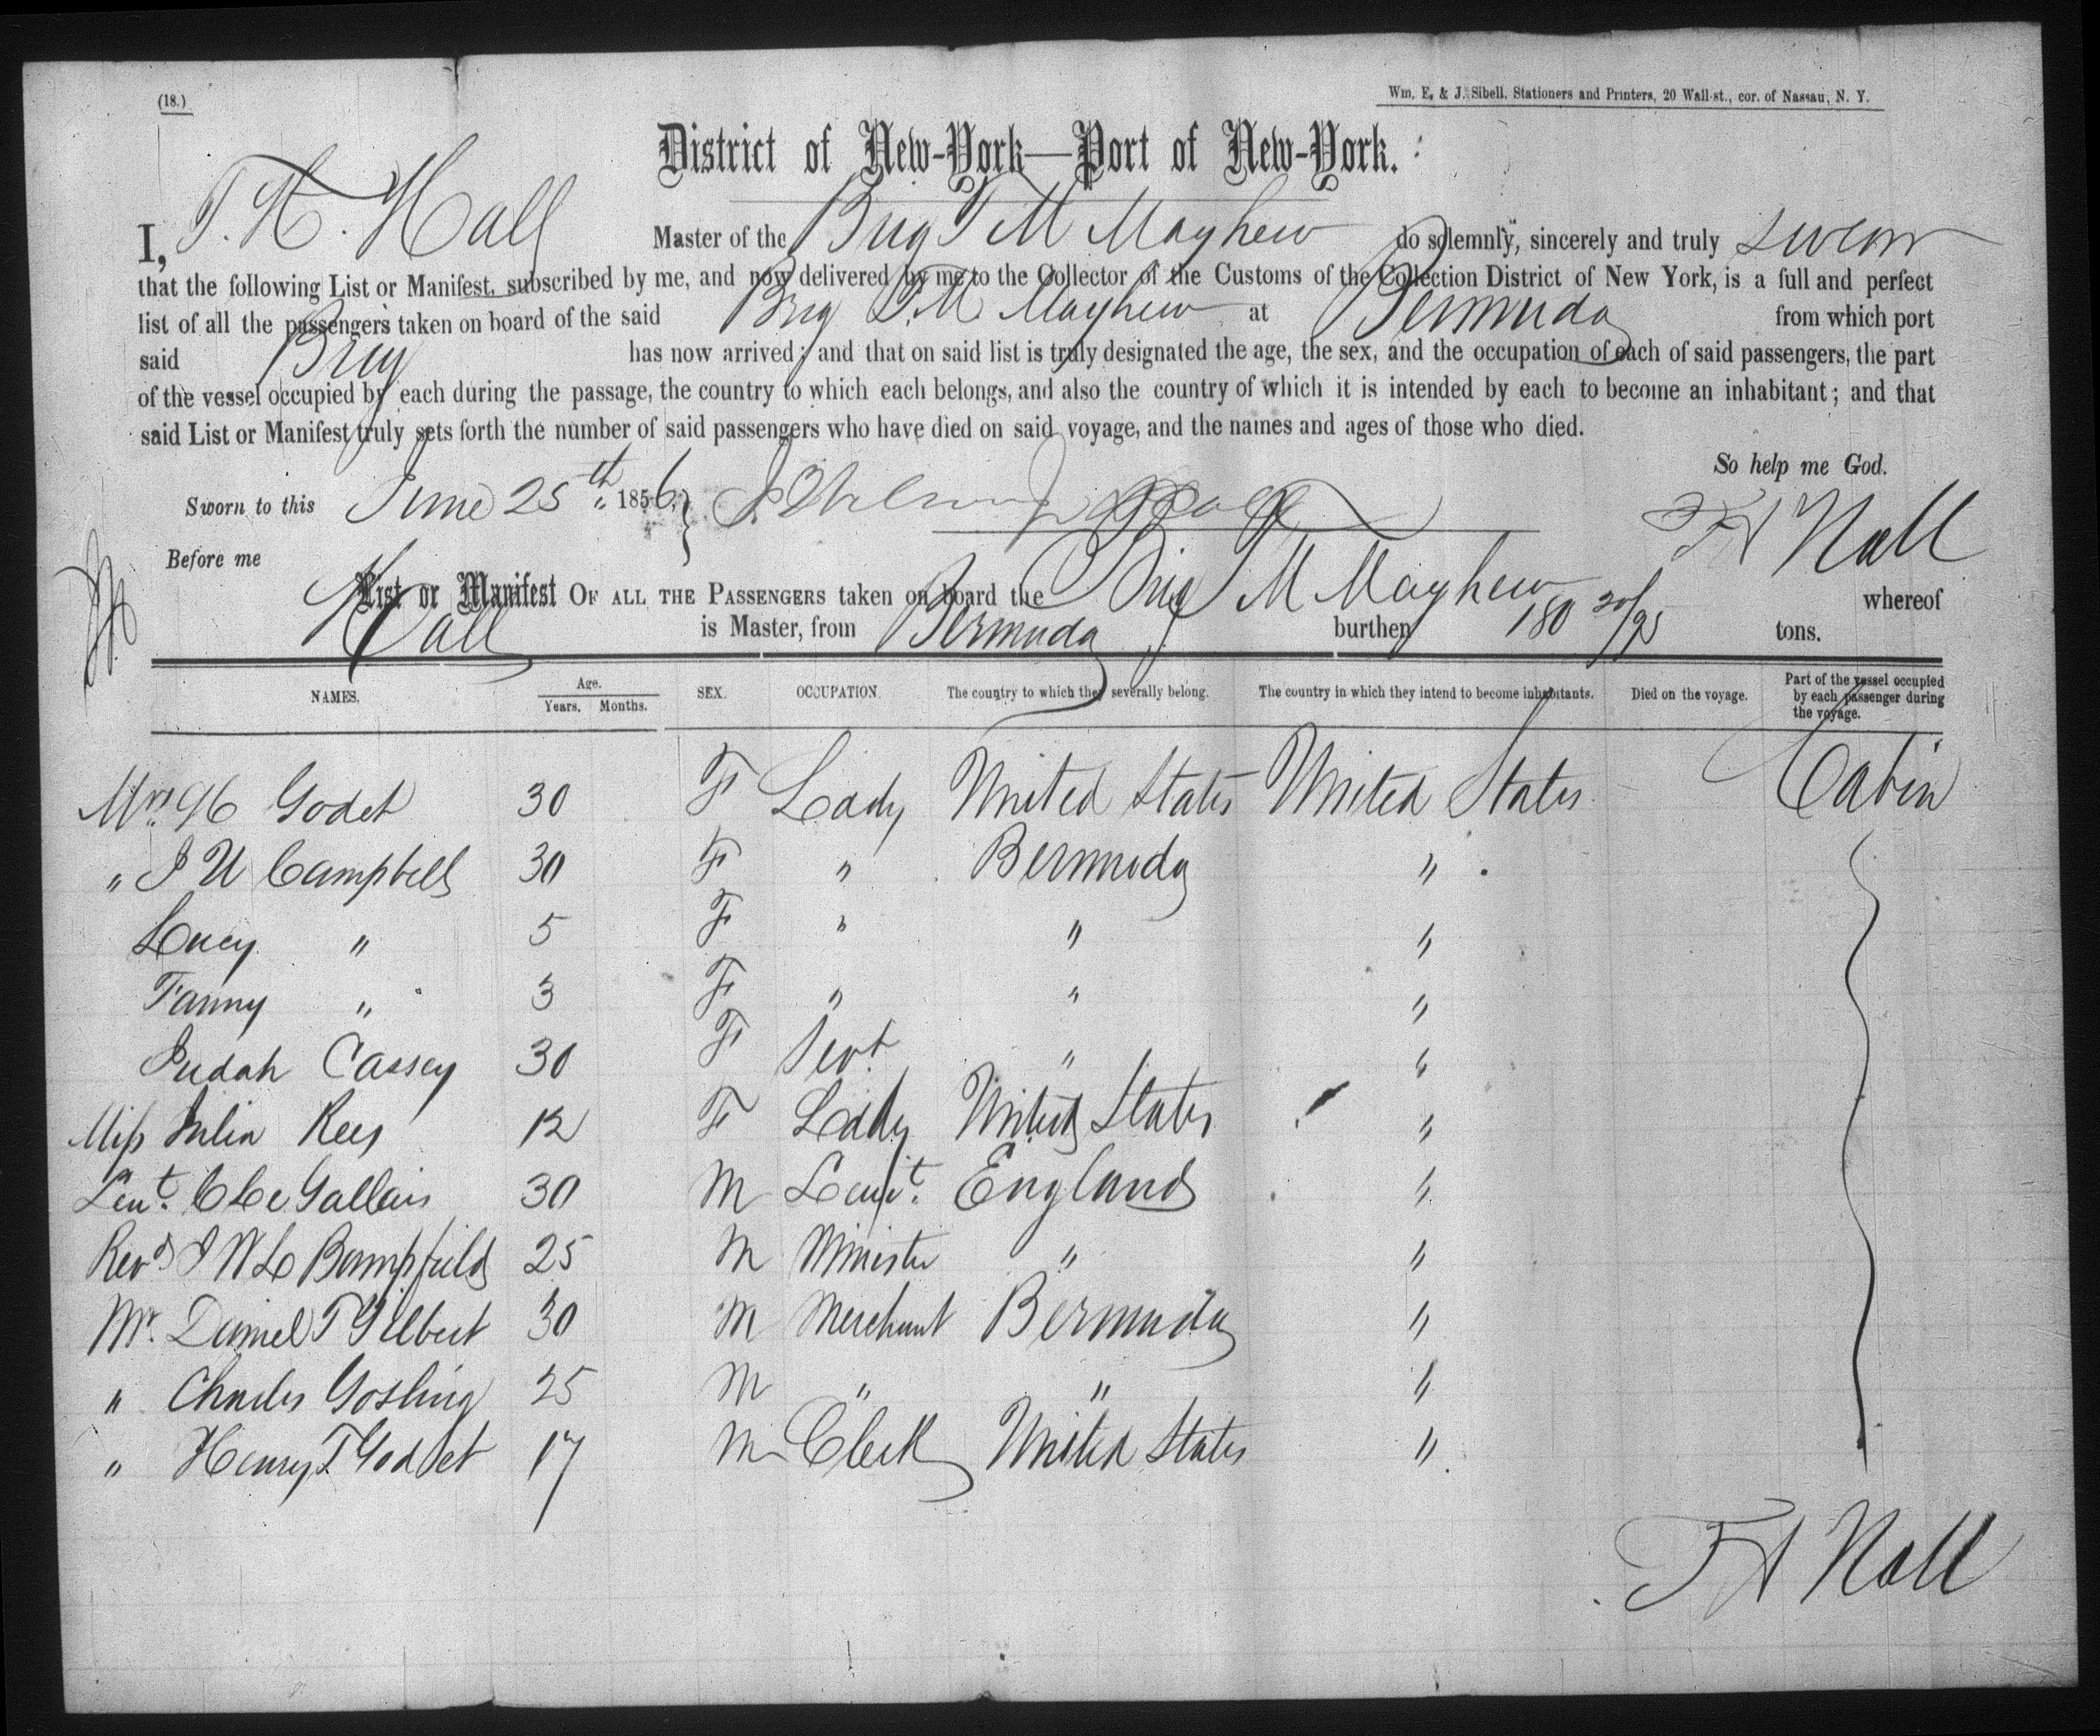 (18.)
Wm. E. & J. Sibell, Stationers and Printers, 20 Wall-st., cor. of Nassau, N. Y.
District of New-York—Port of New-York.
I, T. H. Hall Master of the Brig T M Mayhew do solemnly, sincerely and truly swear
that the following List or Manifest, subscribed by me, and now delivered by me to the Collector of the Customs of the Collection District of New York, is a full and perfect
list of all the passengers taken on board of the said Brig T. M. Mayhew at Bermuda from which port
said Brig has now arrived; and that on said list is truly designated the age, the sex, and the occupation of each of said passengers, the part
of the vessel occupied by each during the passage, the country to which each belongs, and also the country of which it is intended by each to become an inhabitant; and that
said List or Manifest truly sets forth the number of said passengers who have died on said voyage, and the names and ages of those who died.
So help me God.
Sworn to this June 25th 1856,
T H Hall
Before me
List or Manifest OF ALL THE PASSENGERS taken on board the Brig T M Mayhew whereof
Hall is Master, from Bermuda burthen 180 tons.
NAMES. Age. Years. Months. SEX. OCCUPATION. The country to which they severally belong. The country in which they intend to become inhabitants. Died on the voyage. Part of the vessel occupied by each passenger during the voyage.
Mrs. H Godet 30 F Lady United States United States Cabin
" J U Campbell 30 F " Bermuda "
Lucy " 5 F " " "
Fanny " 3 F " " "
Judah Cassey 30 F Servt. " "
Miss Julia Rees 12 F Lady United States "
Leut. C Le Gallais 30 M Leut. England "
Revd J W L Bampfield 25 M Minister " "
Mr. Daniel T Gilbert 30 M Merchant Bermuda "
" Charles Gosling 25 M " " "
" Henry T Godet 17 M Clerk United States "
T H Hall